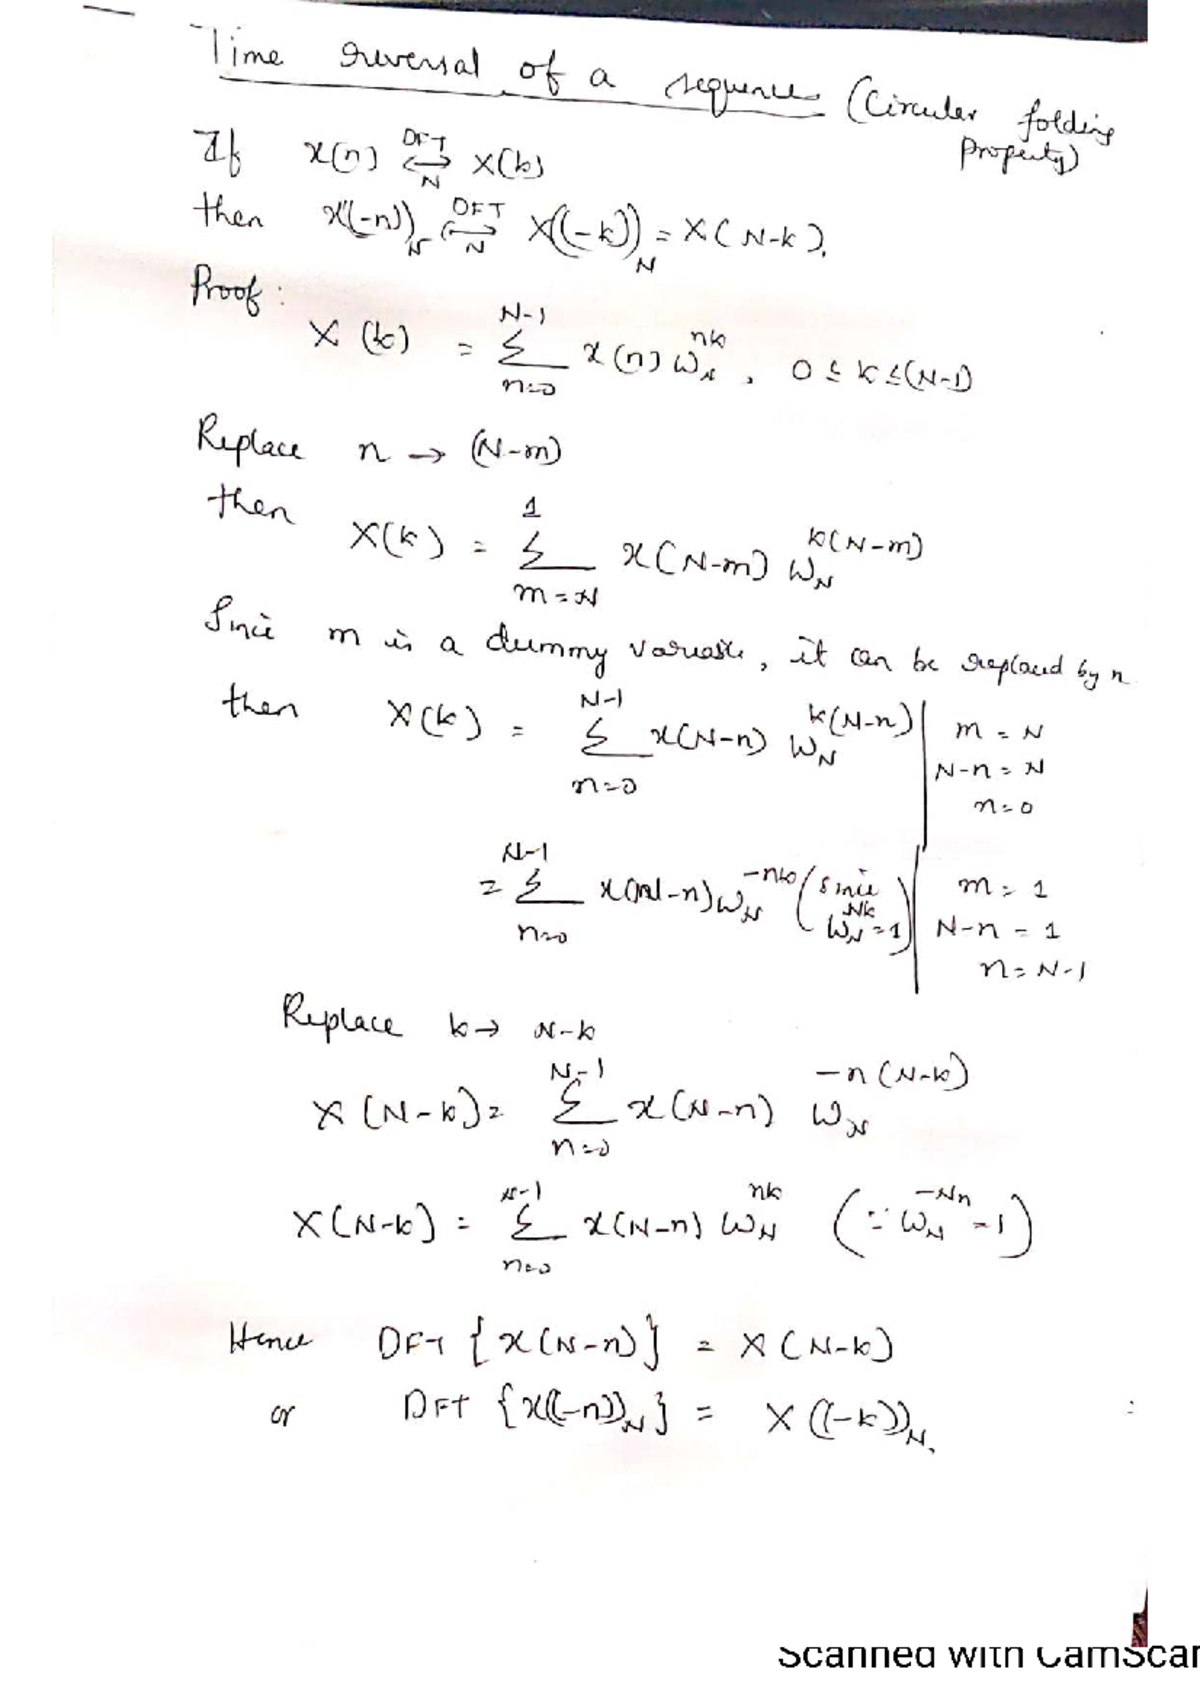 Time reversal of a sequence (Circular folding Property)
If x(n) DFT ⟷ N X(k)
then x((-n))_N DFT ⟷ N X((-k))_N = X(N-k).
Proof:
X(k) = Σ_{n=0}^{N-1} x(n) W_N^{nk}, 0 ≤ k ≤ (N-1)
Replace n → (N-m)
then X(k) = Σ_{m=N}^{1} x(N-m) W_N^{k(N-m)}
Since m is a dummy variable, it can be replaced by n
then X(k) = Σ_{n=0}^{N-1} x(N-n) W_N^{k(N-n)}
m = N
N-n = N
n=0
= Σ_{n=0}^{N-1} x(N-n) W_N^{-nk} (since W_N^{Nk} = 1)
m = 1
N-n = 1
n = N-1
Replace k → N-k
X(N-k) = Σ_{n=0}^{N-1} x(N-n) W_N^{-n(N-k)}
X(N-k) = Σ_{n=0}^{N-1} x(N-n) W_N^{nk} (∵ W_N^{-Nn} = 1)
Hence DFT {x(N-n)} = X(N-k)
or DFT {x((-n))_N} = X((-k))_N.
Scanned with CamScan